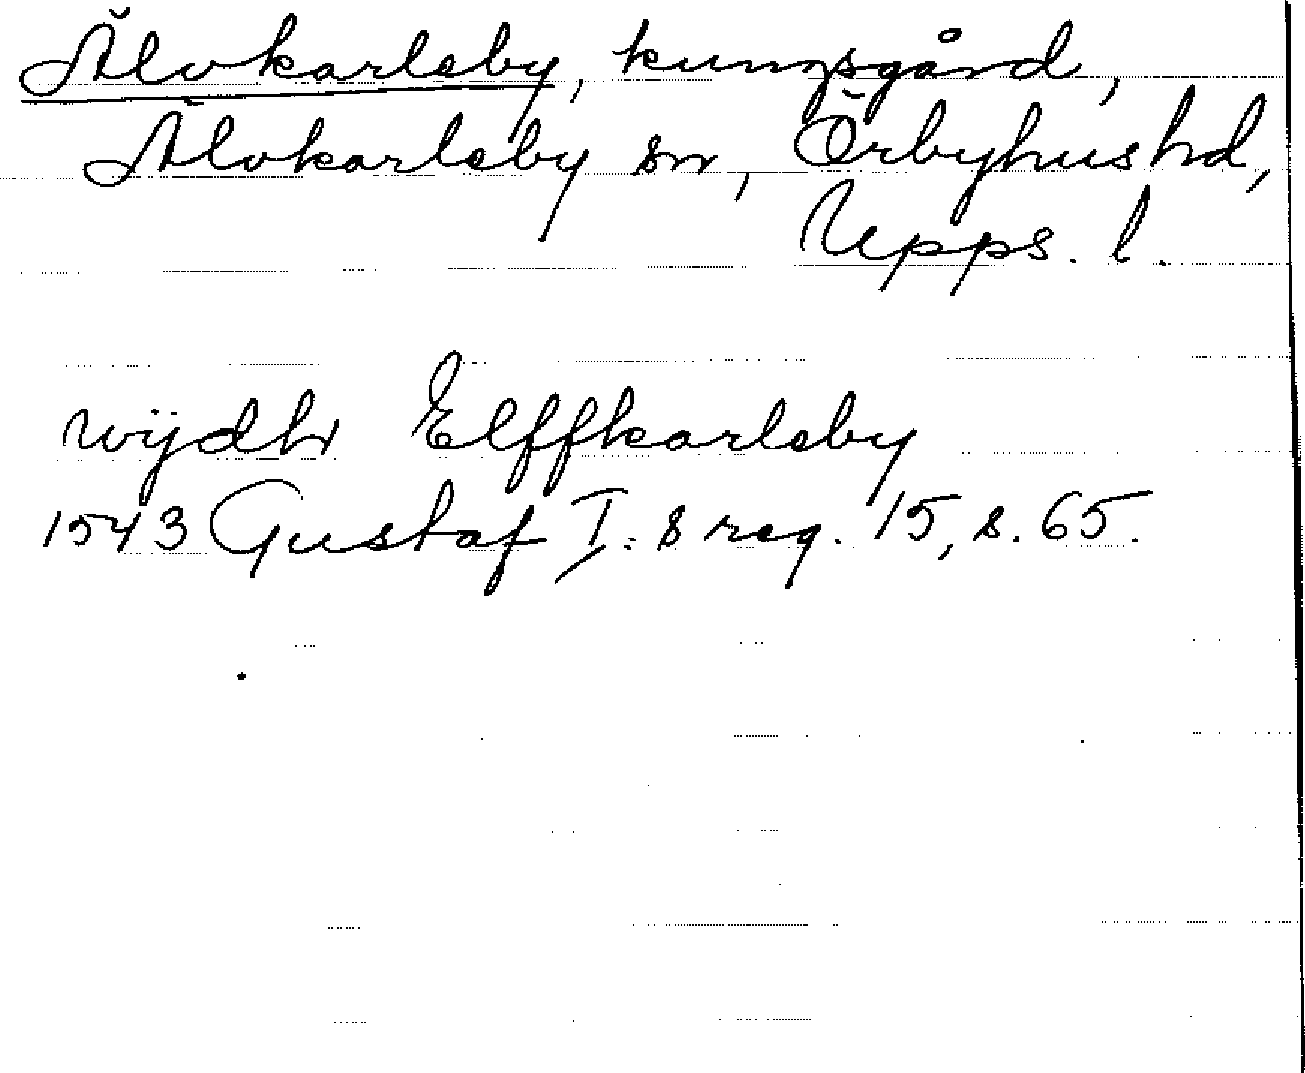 Älvkarleby, kungsgård,
Älvkarleby sn, Örbyhus hd,
Upps. l.
wijdh Elffkarleby
1543 Gustaf I:s reg. 15, s. 65.